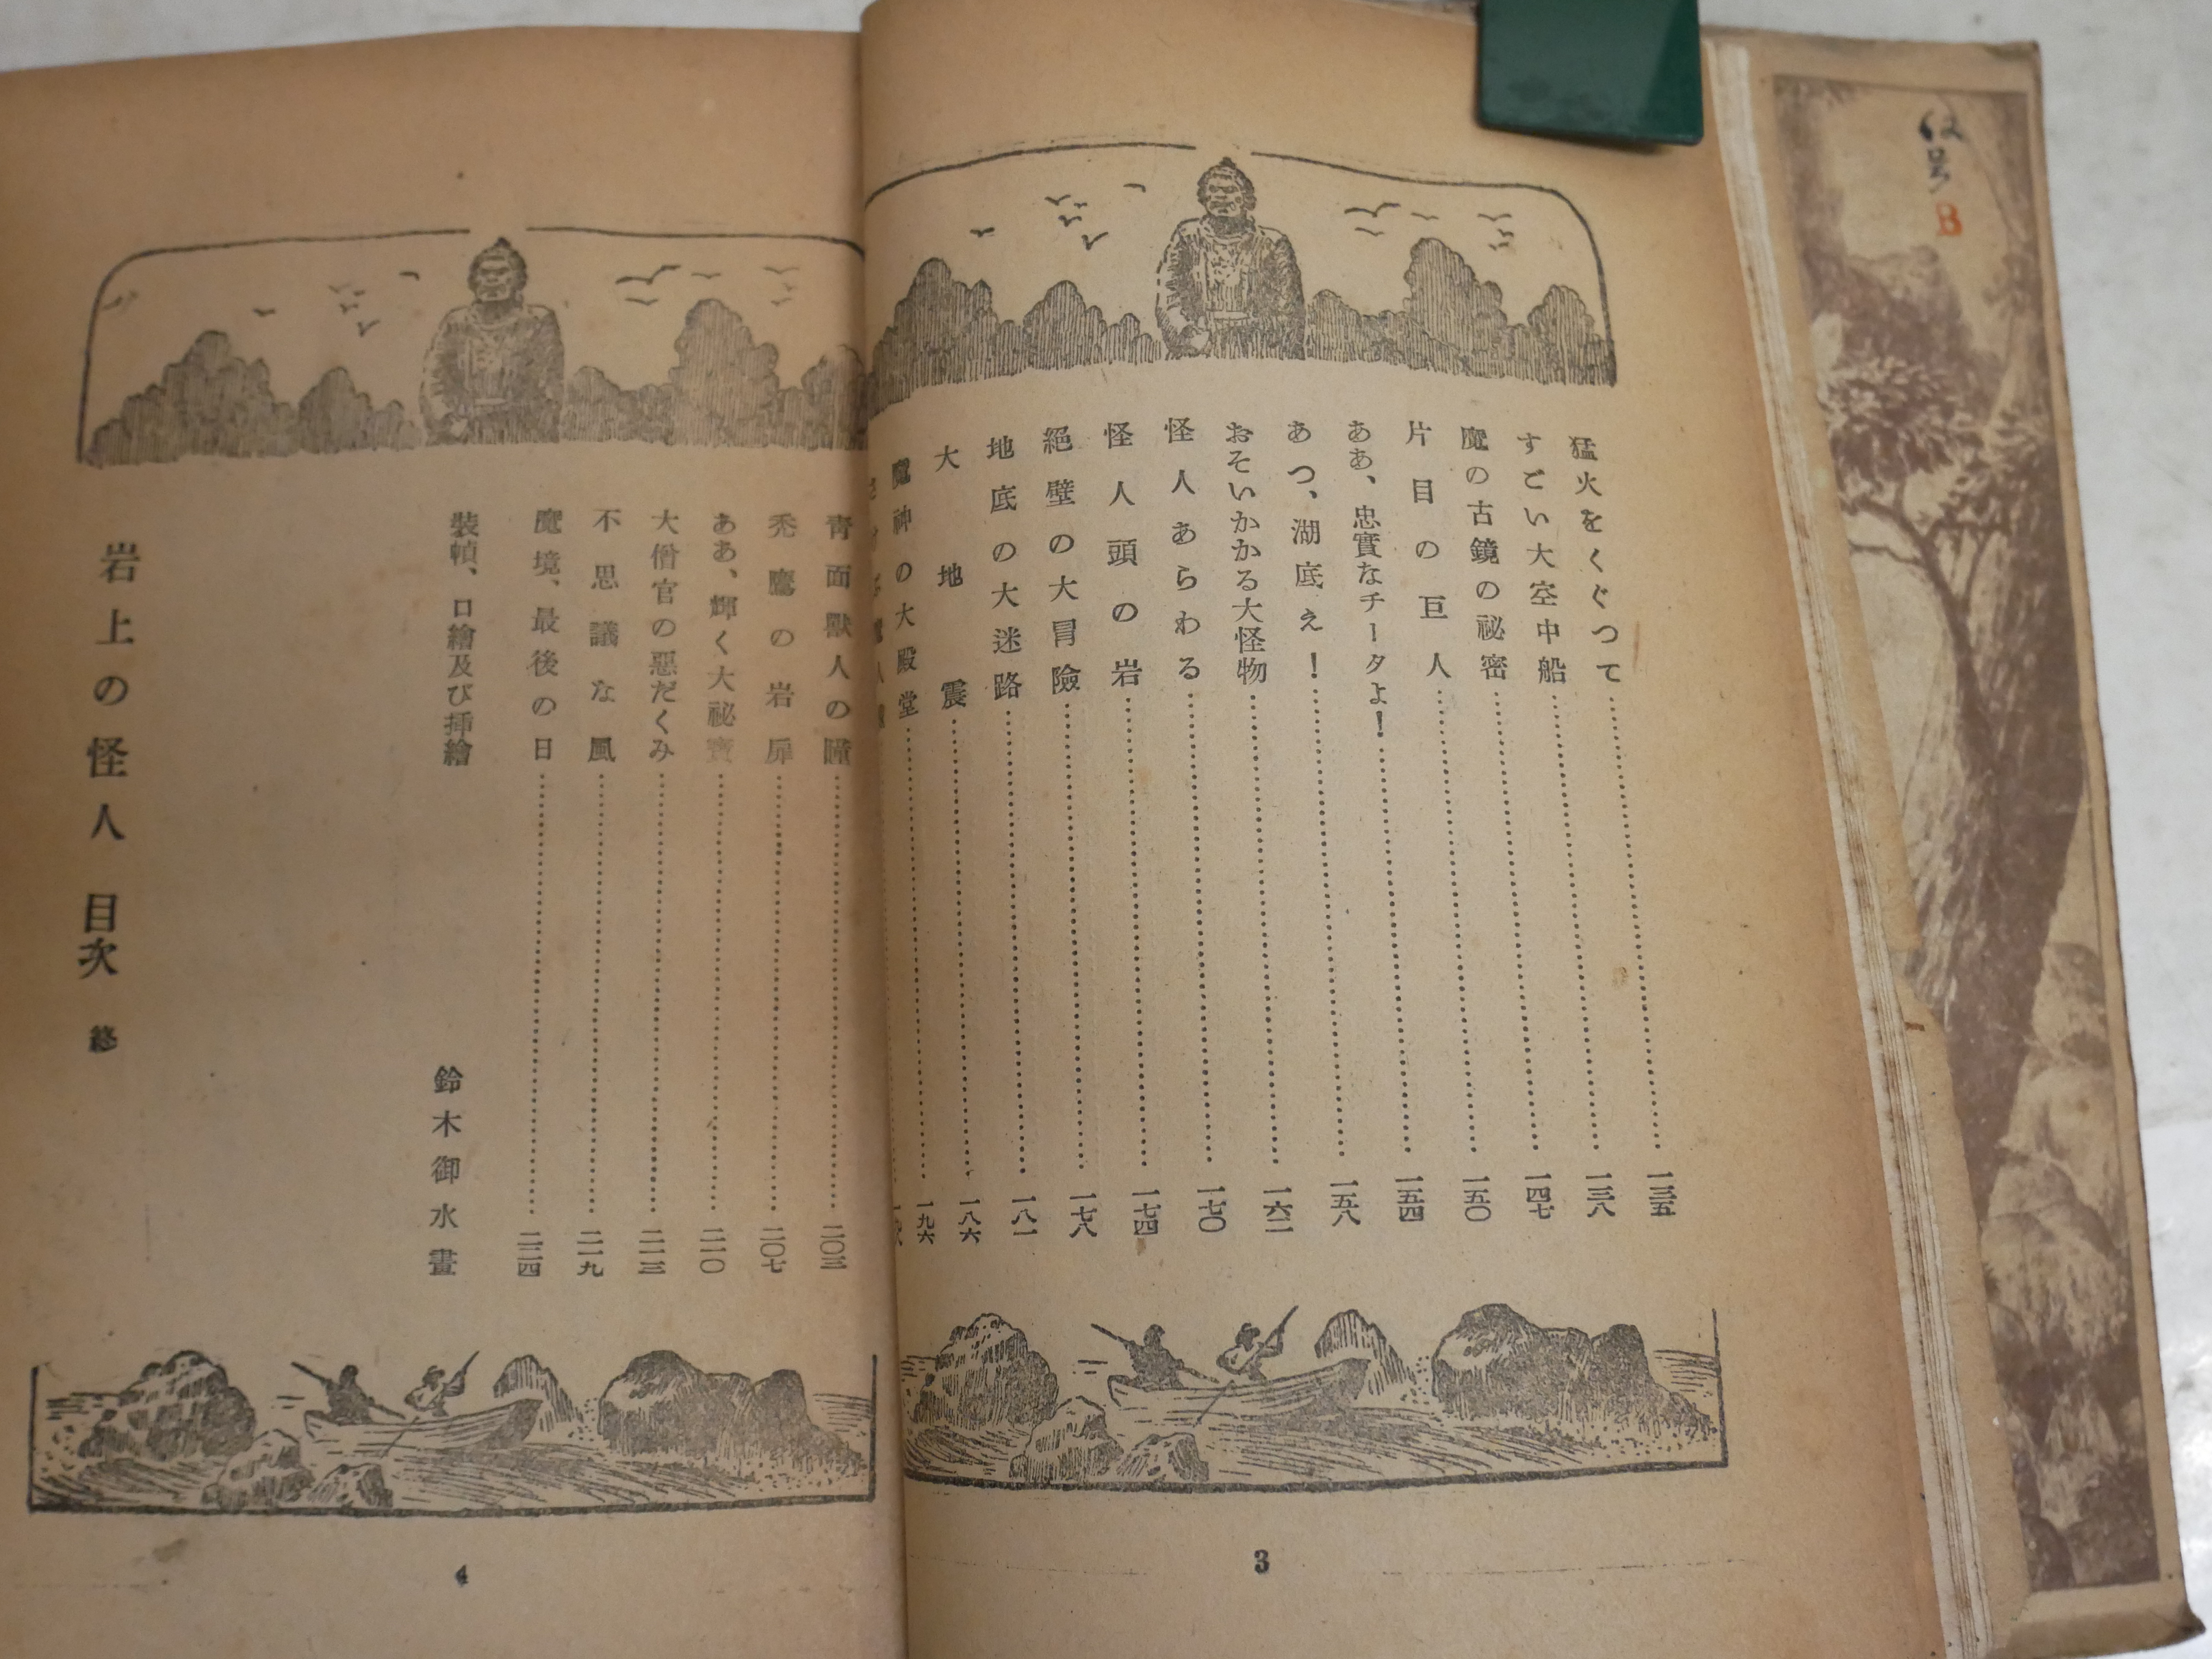 猛火をくぐつて……一三五
すごい大空中船……一三八
魔の古鏡の祕密……一四七
片目の巨人……一五〇
ああ、忠實なチータよ！……一五四
あつ、湖底え！……一五八
おそいかかる大怪物……一六二
怪人あらわる……一七〇
怪人頭の岩……一七四
絕壁の大冒險……一七八
地底の大迷路……一八一
大地震……一八六
魔神の大殿堂……一九六
3
靑面獸人の瞳……二〇三
禿鷹の岩扉……二〇七
ああ、輝く大祕寶……二一〇
大僧官の惡だくみ……二一三
不思議な風……二一九
魔境、最後の日……二二四
裝幀、口繪及び揷繪 鈴木御水畫
岩上の怪人 目次 終
4
B